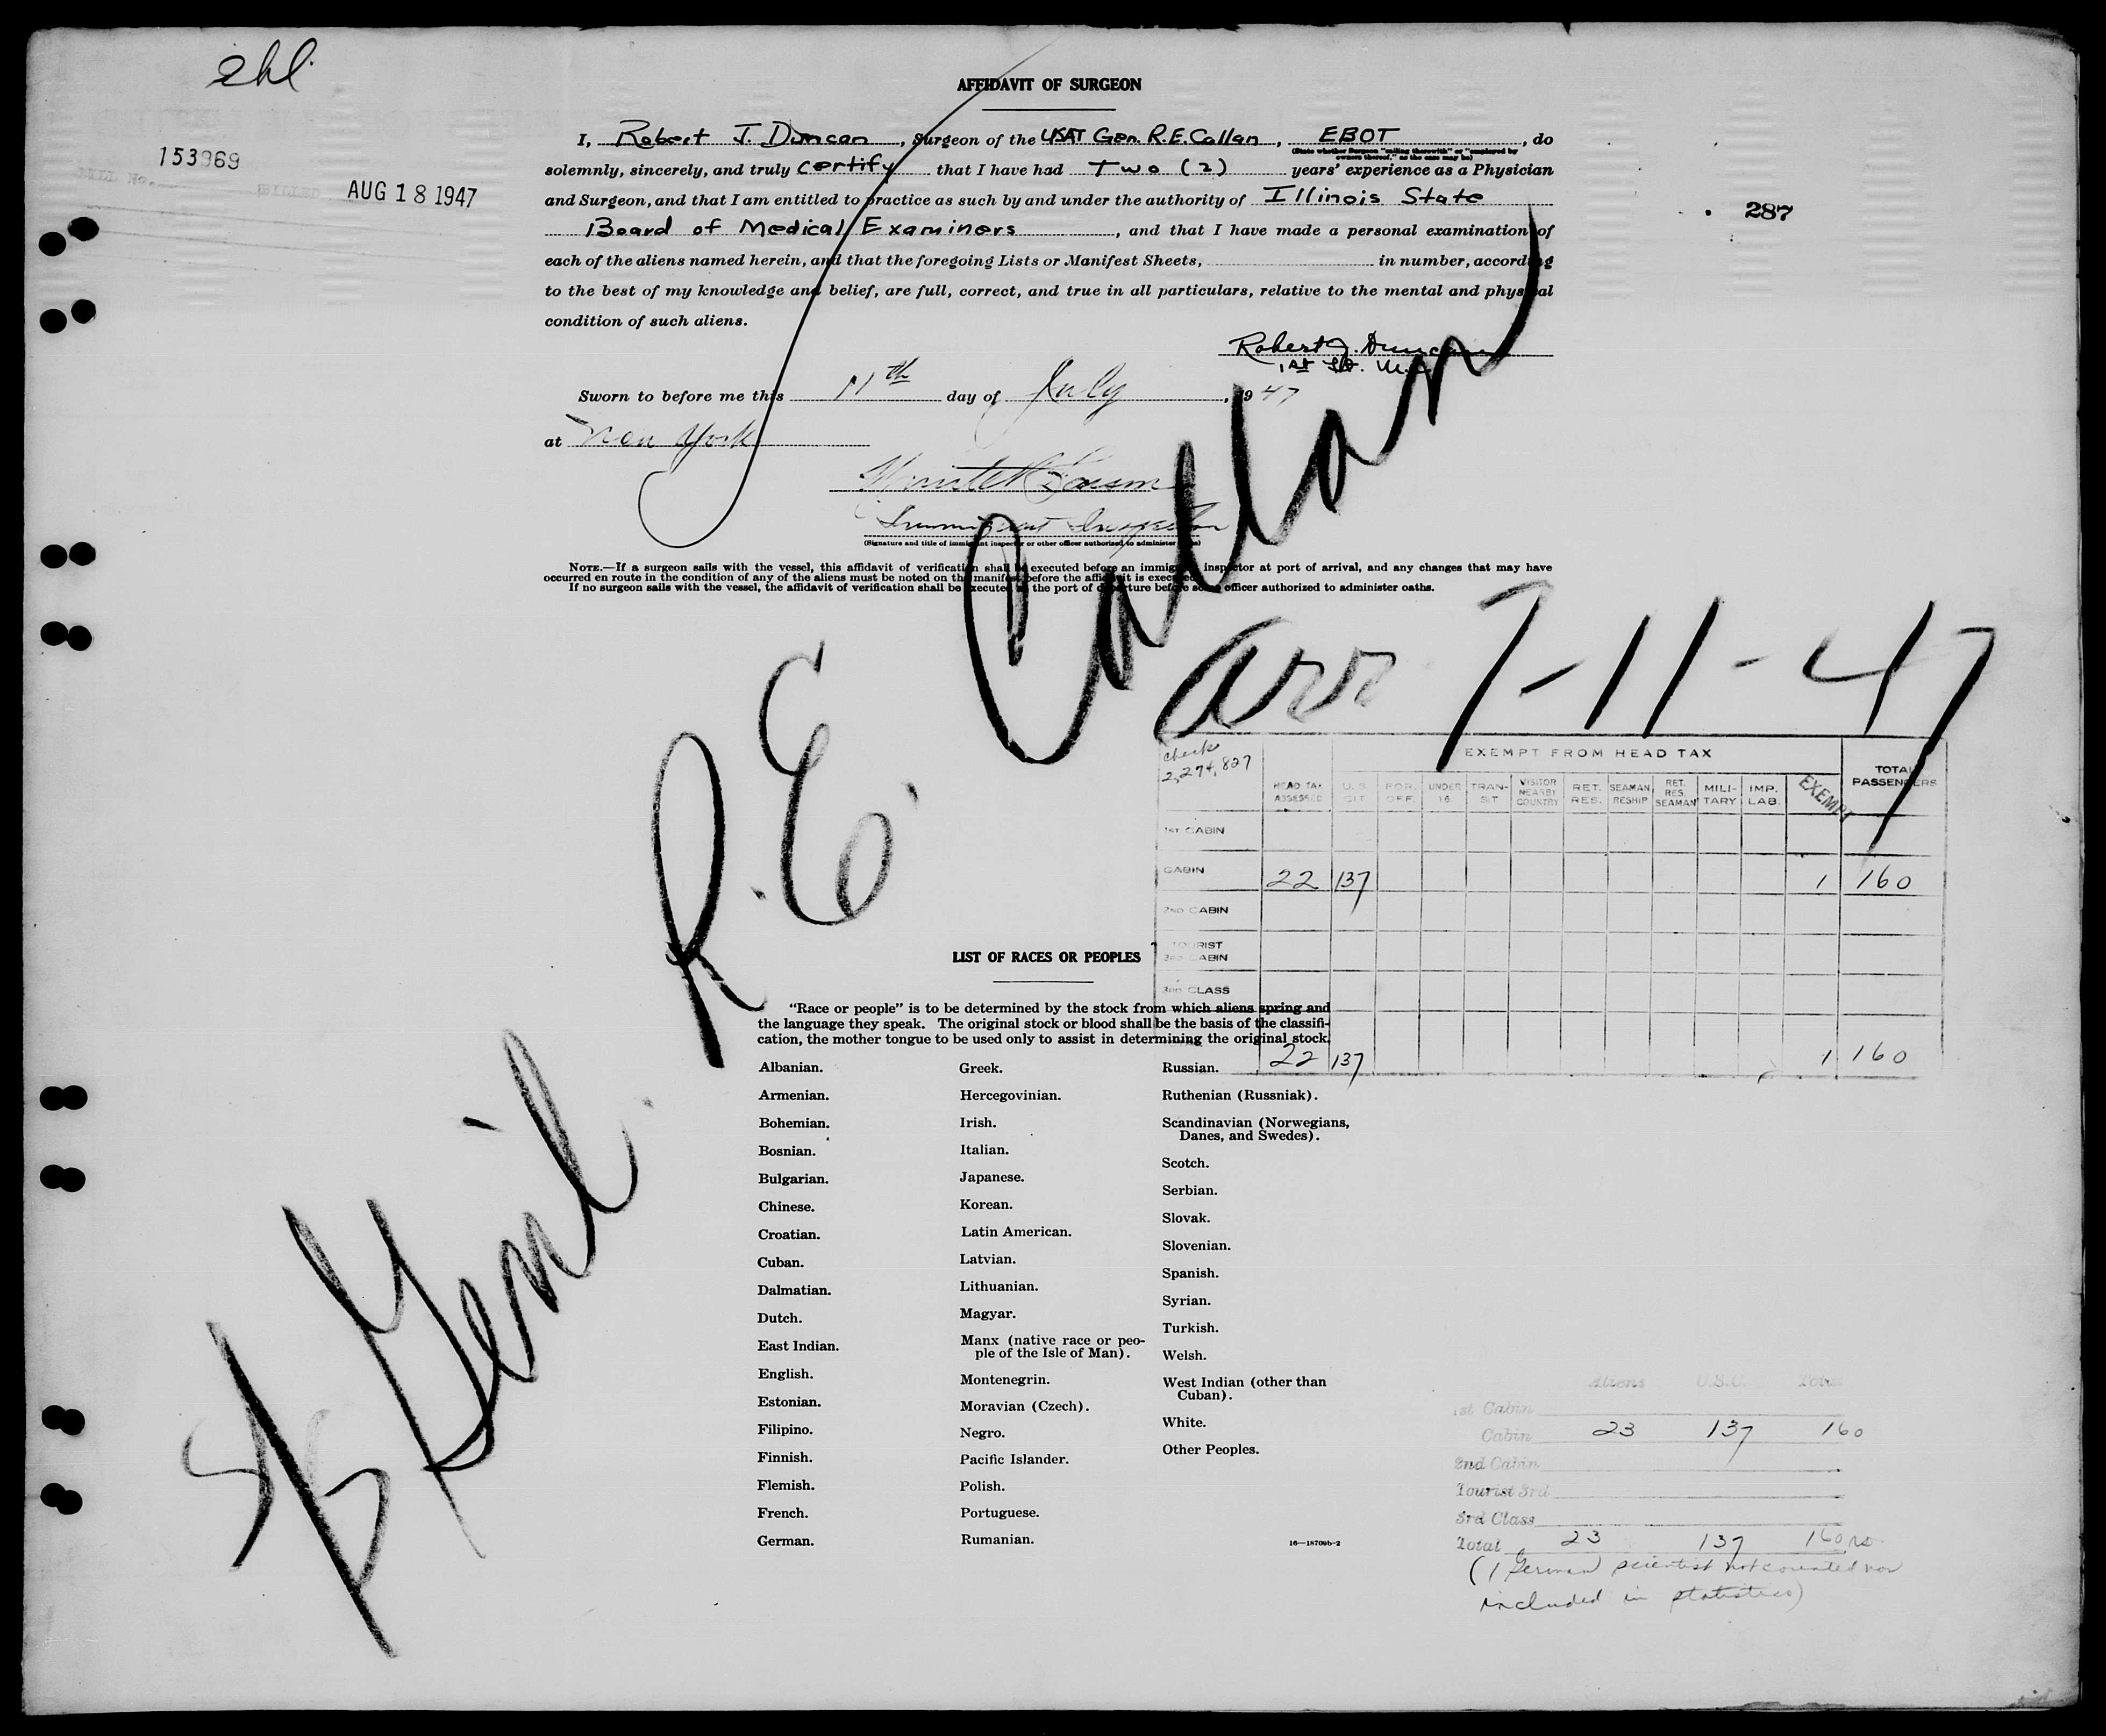 ehl.
153969
BILL No. BILLED AUG 18 1947
287
AFFIDAVIT OF SURGEON
I, Robert J. Duncan, Surgeon of the USAT Gen. R.E. Callan, EBOT, do
(State whether Surgeon "sailing therewith" or "employed by
owners thereof," as the case may be)
solemnly, sincerely, and truly certify that I have had Two (2) years' experience as a Physician
and Surgeon, and that I am entitled to practice as such by and under the authority of Illinois State
Board of Medical Examiners, and that I have made a personal examination of
each of the aliens named herein, and that the foregoing Lists or Manifest Sheets, in number, according
to the best of my knowledge and belief, are full, correct, and true in all particulars, relative to the mental and physical
condition of such aliens.
Robert J. Duncan
1st Lt. M.C.
Sworn to before me this 11th day of July, 1947
at New York
Immigrant Inspector
(Signature and title of immigrant inspector or other officer authorized to administer oaths)
NOTE.—If a surgeon sails with the vessel, this affidavit of verification shall be executed before an immigrant inspector at port of arrival, and any changes that may have
occurred en route in the condition of any of the aliens must be noted on the manifest before the affidavit is executed.
If no surgeon sails with the vessel, the affidavit of verification shall be executed at the port of departure before some officer authorized to administer oaths.
Genl. R.E. Callan
arr 7-11-47
check
2,274,827
EXEMPT FROM HEAD TAX
HEAD TAX ASSESSED U.S. CIT. FOR. OFF. UNDER 16 TRANSIT VISITOR NEARBY COUNTRY RET. RES. SEAMAN RESHIP RET. RES. SEAMAN MILITARY IMP. LAB. EXEMPT TOTAL PASSENGERS
1ST CABIN
CABIN 22 137 1 160
2ND CABIN
TOURIST
3RD CABIN
3RD CLASS
22 137 1 160
LIST OF RACES OR PEOPLES
"Race or people" is to be determined by the stock from which aliens spring and
the language they speak. The original stock or blood shall be the basis of the classifi-
cation, the mother tongue to be used only to assist in determining the original stock.
Albanian.
Armenian.
Bohemian.
Bosnian.
Bulgarian.
Chinese.
Croatian.
Cuban.
Dalmatian.
Dutch.
East Indian.
English.
Estonian.
Filipino.
Finnish.
Flemish.
French.
German.
Greek.
Hercegovinian.
Irish.
Italian.
Japanese.
Korean.
Latin American.
Latvian.
Lithuanian.
Magyar.
Manx (native race or peo-
ple of the Isle of Man).
Montenegrin.
Moravian (Czech).
Negro.
Pacific Islander.
Polish.
Portuguese.
Rumanian.
Russian.
Ruthenian (Russniak).
Scandinavian (Norwegians,
Danes, and Swedes).
Scotch.
Serbian.
Slovak.
Slovenian.
Spanish.
Syrian.
Turkish.
Welsh.
West Indian (other than
Cuban).
White.
Other Peoples.
16—18709b-2
Aliens U.S.C. Total
1st Cabin
Cabin 23 137 160
2nd Cabin
Tourist 3rd
3rd Class
Total 23 137 160
(1 German scientist not counted nor
included in statistics)